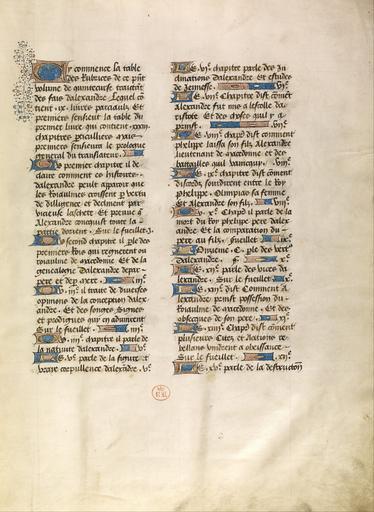 Cy commence la table
des Rubrices de ce pñt
volume de quinteurse traitāt
des fais dalexandre. Lequel cō
tient .ix. liures parciaulx. Et
premiers senssieut la table du
premier liure qui contient .xxvi.
chapitres
premiers senssieut le prologue
general du translateur.
Le premier chapitre
claire comment ce histoire
dalexandre peult apparoir que
les Roiaulmes croissent par vertu
de dilligence et declinent par
Et comme
Alexandre conquist toute la
partie dorient. Sur le fueillet .i.
Le second chapitre parle des
premiers Rois qui regnerent ou
roiaulme de macedone. Et de la
genealogie Dalexandre de par
pere et de par mere. iii.
Le .iii. traite de diuerses
opinions de la conception dalex
andre. Et des songes Signes
et prodigues qui en aduindrent
Sur le fueillet .iiii.
Le .iiii. chapitre parle de
la natiuite dalexandre. vi.
Le .v. parle de la figure et
corpulence dalexandre. vi.
Le .vi. chapitre parle des In
clinations dalexandre Et estudes
de Jeunesse. vii.
Le .vii. Chapitre dist comēt
Alexandre fut mis a lescolle da
ristote. Et des choses quil y a
prinst. vii.
Le .viii. chapitre dist comment
phelippe laissa son filz Alexandre
lieutenant de macedone et des
batailles quil vainquy. viii.
Le .ix. chapitre dist cōment
discord sourdirent entre le Roy
phelippe. Olimpias sa femme
Et Alexandre son filz. viii.
Le .x. Chapitre parle de la
mort du Roy phelippe pere dalex
andre. Et la comparation du
pere au filz. fueillet ix.
Onzieme .C. parle des vertus
Dalexandre. x.
Le .xii. parle des vices da
lexandre. Sur le fueillet x.
Le .xiii. dist Comment A
lexandre prinst possession du
Roiaulme de macedone. Et des
obseques de son pere. xi.
Le .xiiii. Chapitre dist cōment
plusieurs Citez et Nations re
bellans vindrent a obeissance.
Sur le fueillet. xii.
Le .xv. parle de la destruction